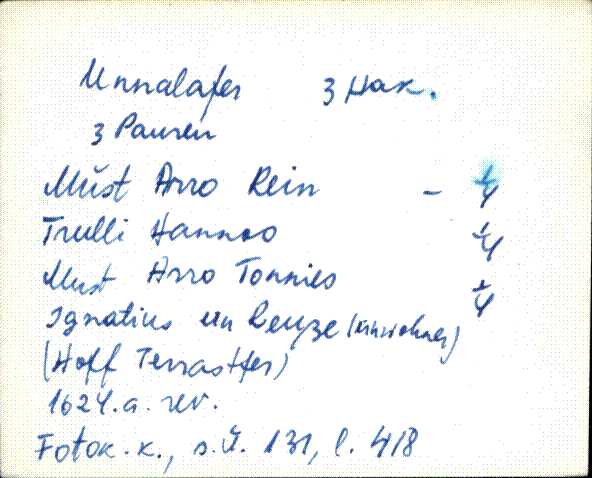 Unnalafer 3 Hak.
3 Pauren
Must Arro Rein - 1/4
Trulli Hannos 1/4
Must Arro Tonnies 1/4
Ignatius un (Einwohner)
(Hoff Terrastfer)
1624. a. rev.
Fotok. k., s. ü. 131, l. 418